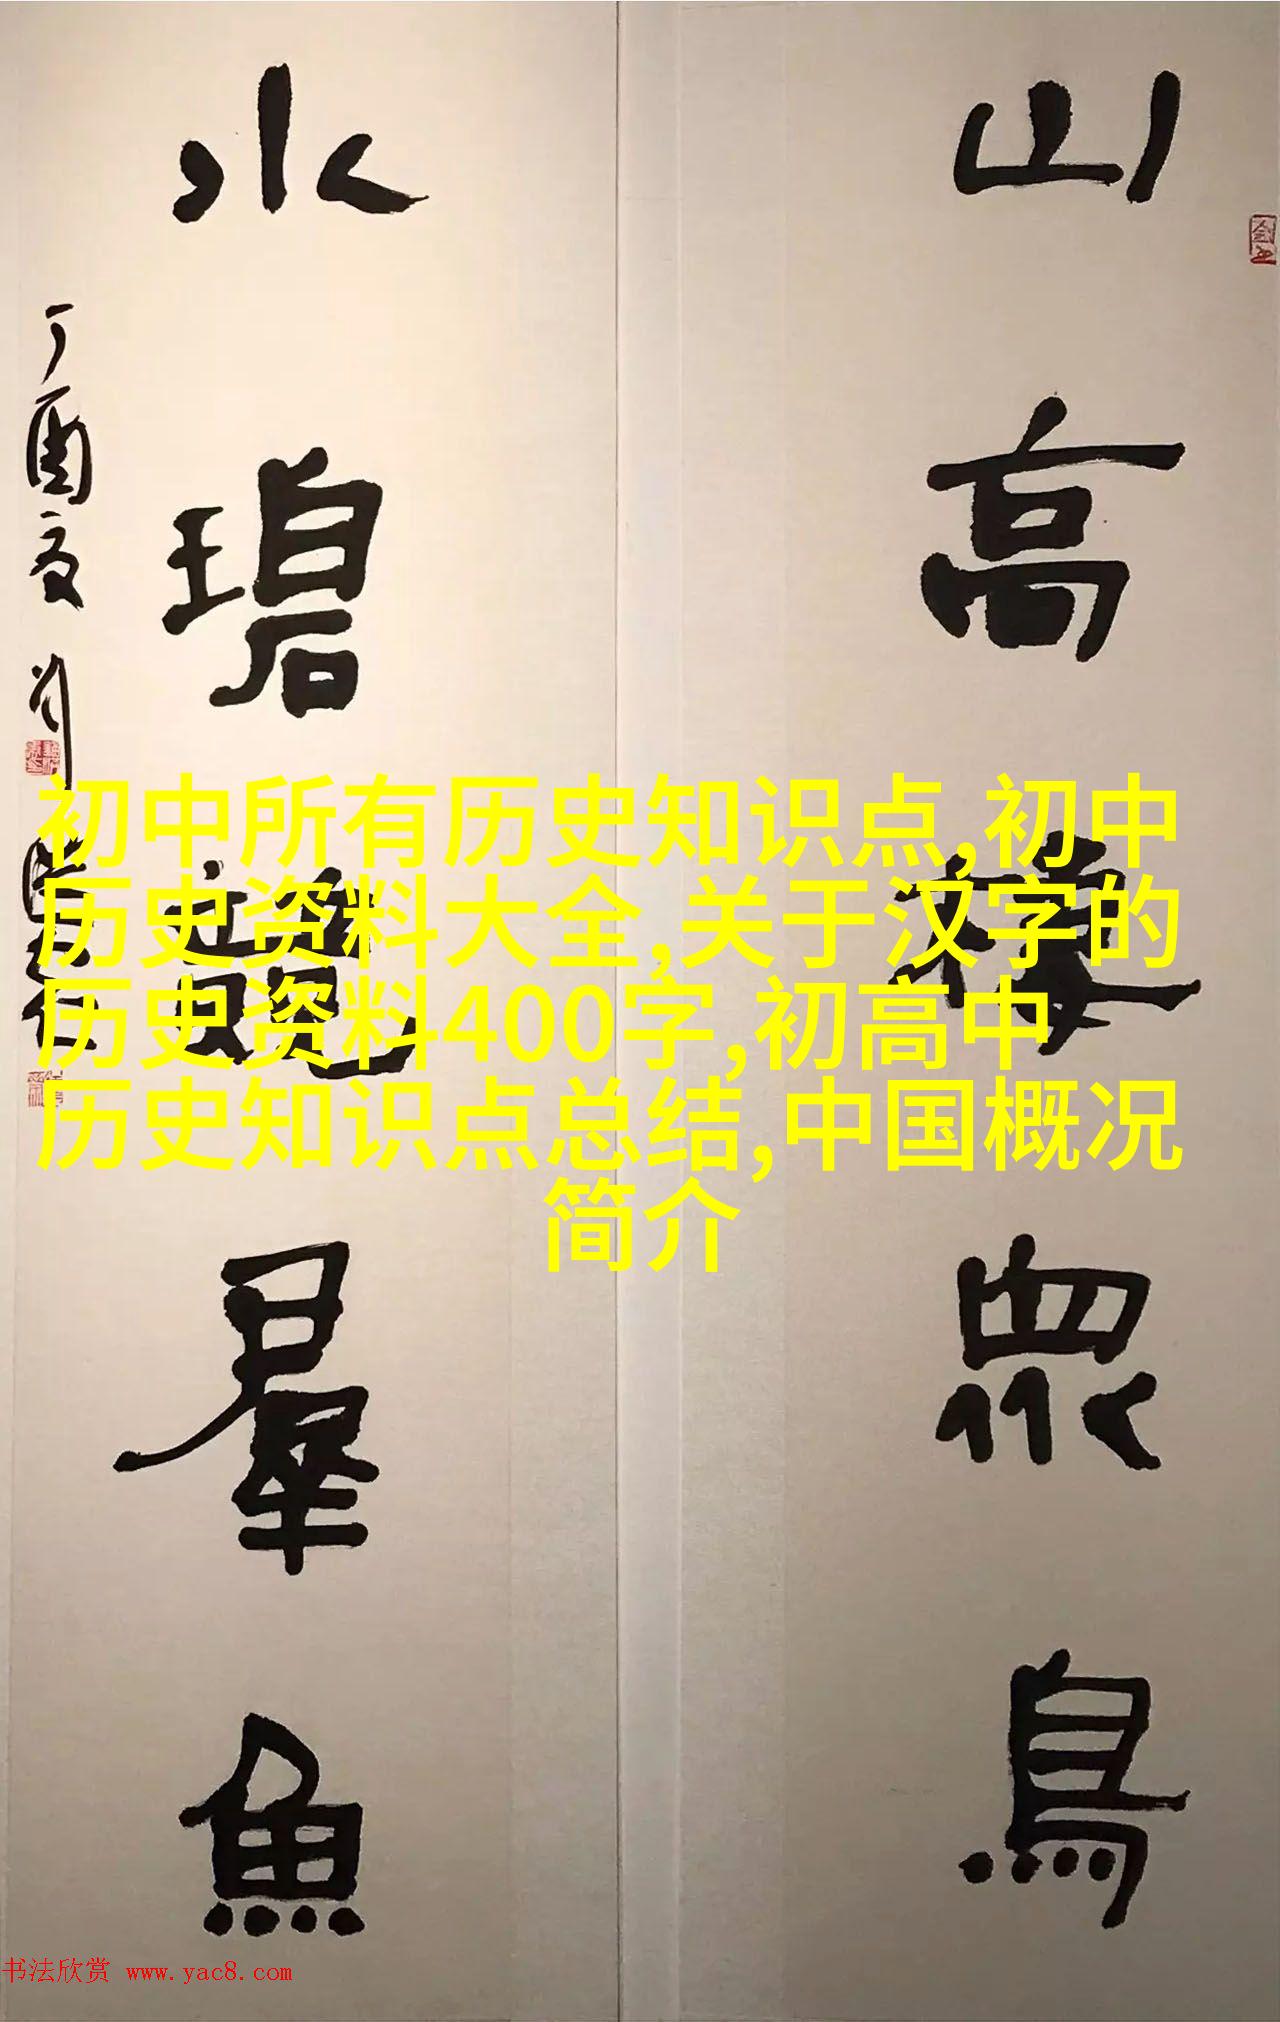 山高棲眾鳥
水碧觀羣魚
丁酉夏
初中所有历史知识点,初中
历史资料大全,关于汉字的
历史资料400字,初高中
历史知识点总结,中国概况
简介
书法欣赏 www.yac8.com